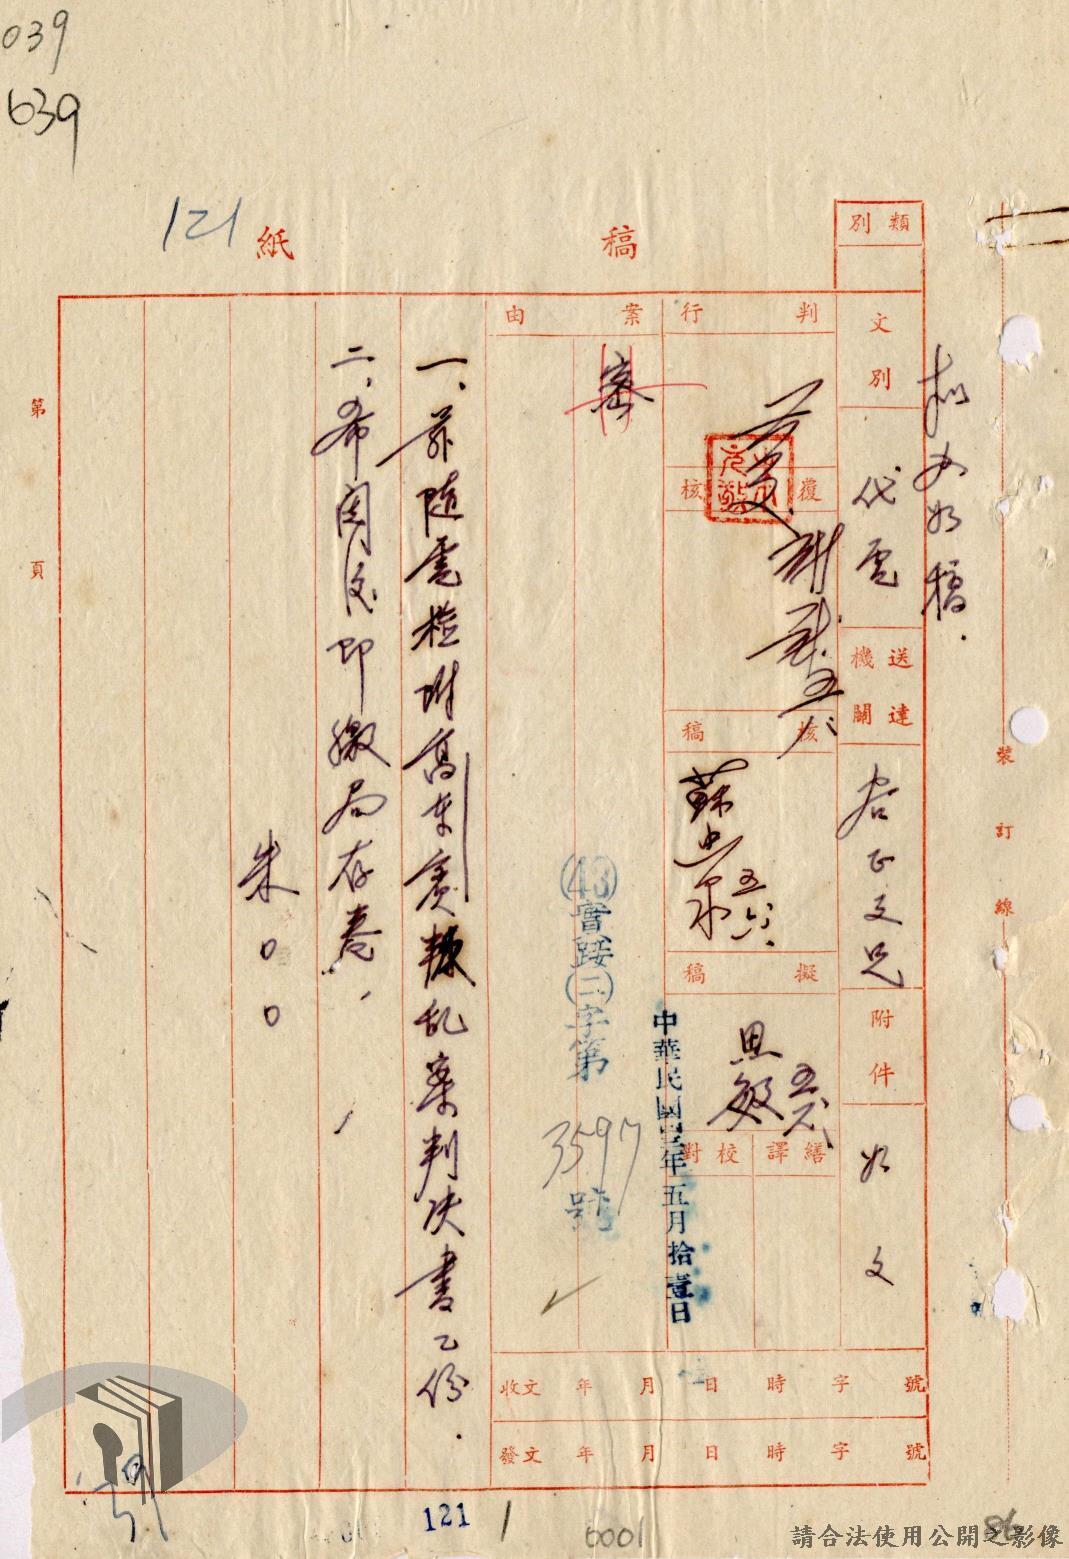 039
639
121
稿紙
類別
文別
代電
送達機關
谷正文兄
附件
如文
判行
覆核
核稿
五六
擬稿
思敏
繕譯
校對
案由
密
中華民國四三年五月拾壹日
(43)實踐(二)字第3597號
一、茲隨電檢附高東賓叛乱案判決書乙份.
二、希閱後即繳局存卷,
朱00
收文 年 月 日 時 字 號
發文 年 月 日 時 字 號
裝訂線
第 頁
121
1
6001
86
請合法使用公開之影像